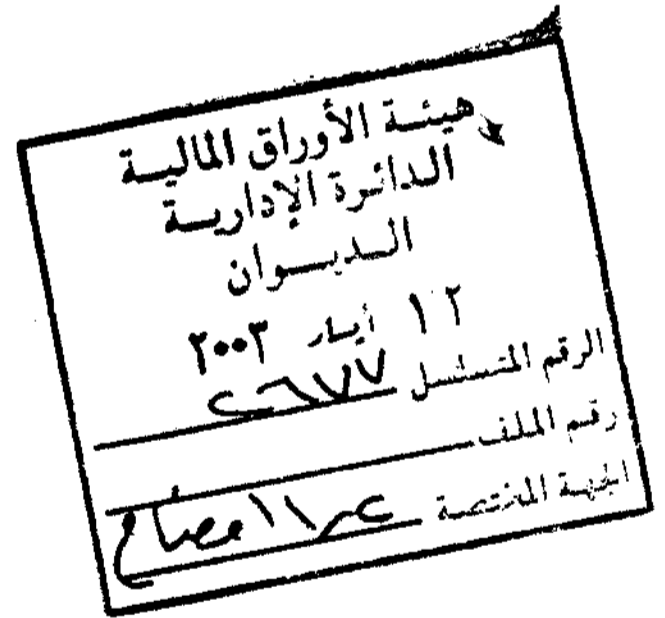 هيئة الأوراق المالية
الدائرة الإدارية
الديوان
١٢ أيار ٢٠٠٣
الرقم المتسلسل ٢٦٧٧
رقم الملف
الجهة المختصة